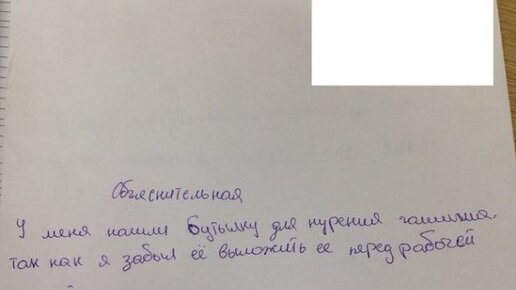 Объяснительная
У меня нашли бутылку для курения гашиша
так как я забыл её выложить ее перед рабочей